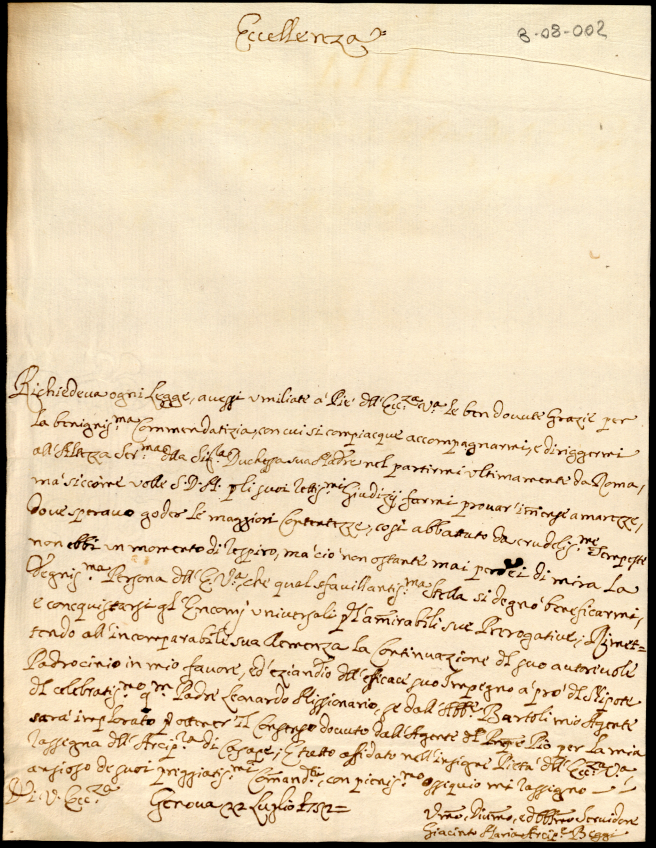 Eccellenza
8-08-002
Richiedeva ogni Legge, avessi umiliate a' Pie' dell'Ecc.za V.a le ben dovute Grazie per
la benigniss.ma Commendatizia, con cui si compiacque accompagnarmi, e diriggermi
all'Altezza Ser.ma della Sig.la Duchessa sua Madre nel partirmi ultimamente da Roma,
ma siccome volle S.D.M. p li suoi rettiss.mi Giudizij farmi provar' im̃ense amarezze,
dove speravo goder le maggiori Contentezze, così abbattuto da crudeliss.me Tempeste
non ebbi un momento di respiro, ma ciò non ostante mai perdei di mira la
Degniss.ma Persona dell'E. V.a, che qual sfavillantiss.ma Stella si degnò beneficarmi,
e conequistarsi gl'Encomj universali p l'am̃irabili sue Prerogative; Rimet=
tendo all'incomparabile sua Clemenza la Continuazione del suo autorevole
Padrocinio in mio favore, ed eziandio dell'efficace suo Impegno a prò del Nipote
del celebratiss.mo q.m Padre Leonardo Missionario, se dall'Abb.e Bartoli mio Agente
sarà implorato p ottener' il Consenso dovuto dall'Agente del Pnpe Pio per la mia
rassegna dell'Arcip.la di Casape; E tutto affidato nell'insigne Pietà dell'Ecc.za V.a
ansioso de suoi preggiatiss.mi Comandi, con pieniss.mo ossequio mi rassegno
Di. V. Ecc.za
Genova 22 Luglio 1752=
Umo, Divmo, ed Obbmo Servidore
Giacinto Maria Arcip.e Beggi